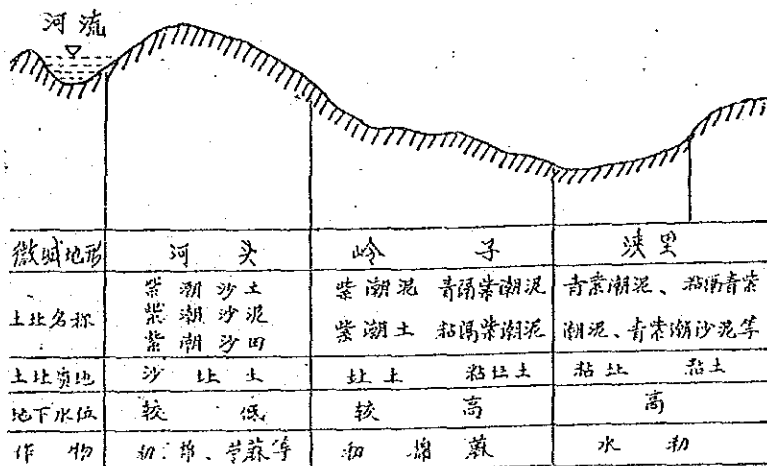 河流
微域地形 河头 岭子 浃里
土壤名称
紫潮沙土
紫潮沙泥
紫潮沙田
紫潮泥 青隔紫潮泥
紫潮土 粘隔紫潮泥
青紫潮泥、粘隔青紫
潮泥、青紫潮沙泥等
土壤质地 沙壤土 壤土 粘壤土 粘壤 黏土
地下水位 较低 较高 高
作物 稻、棉、苧蔴等 稻棉蔴 水稻